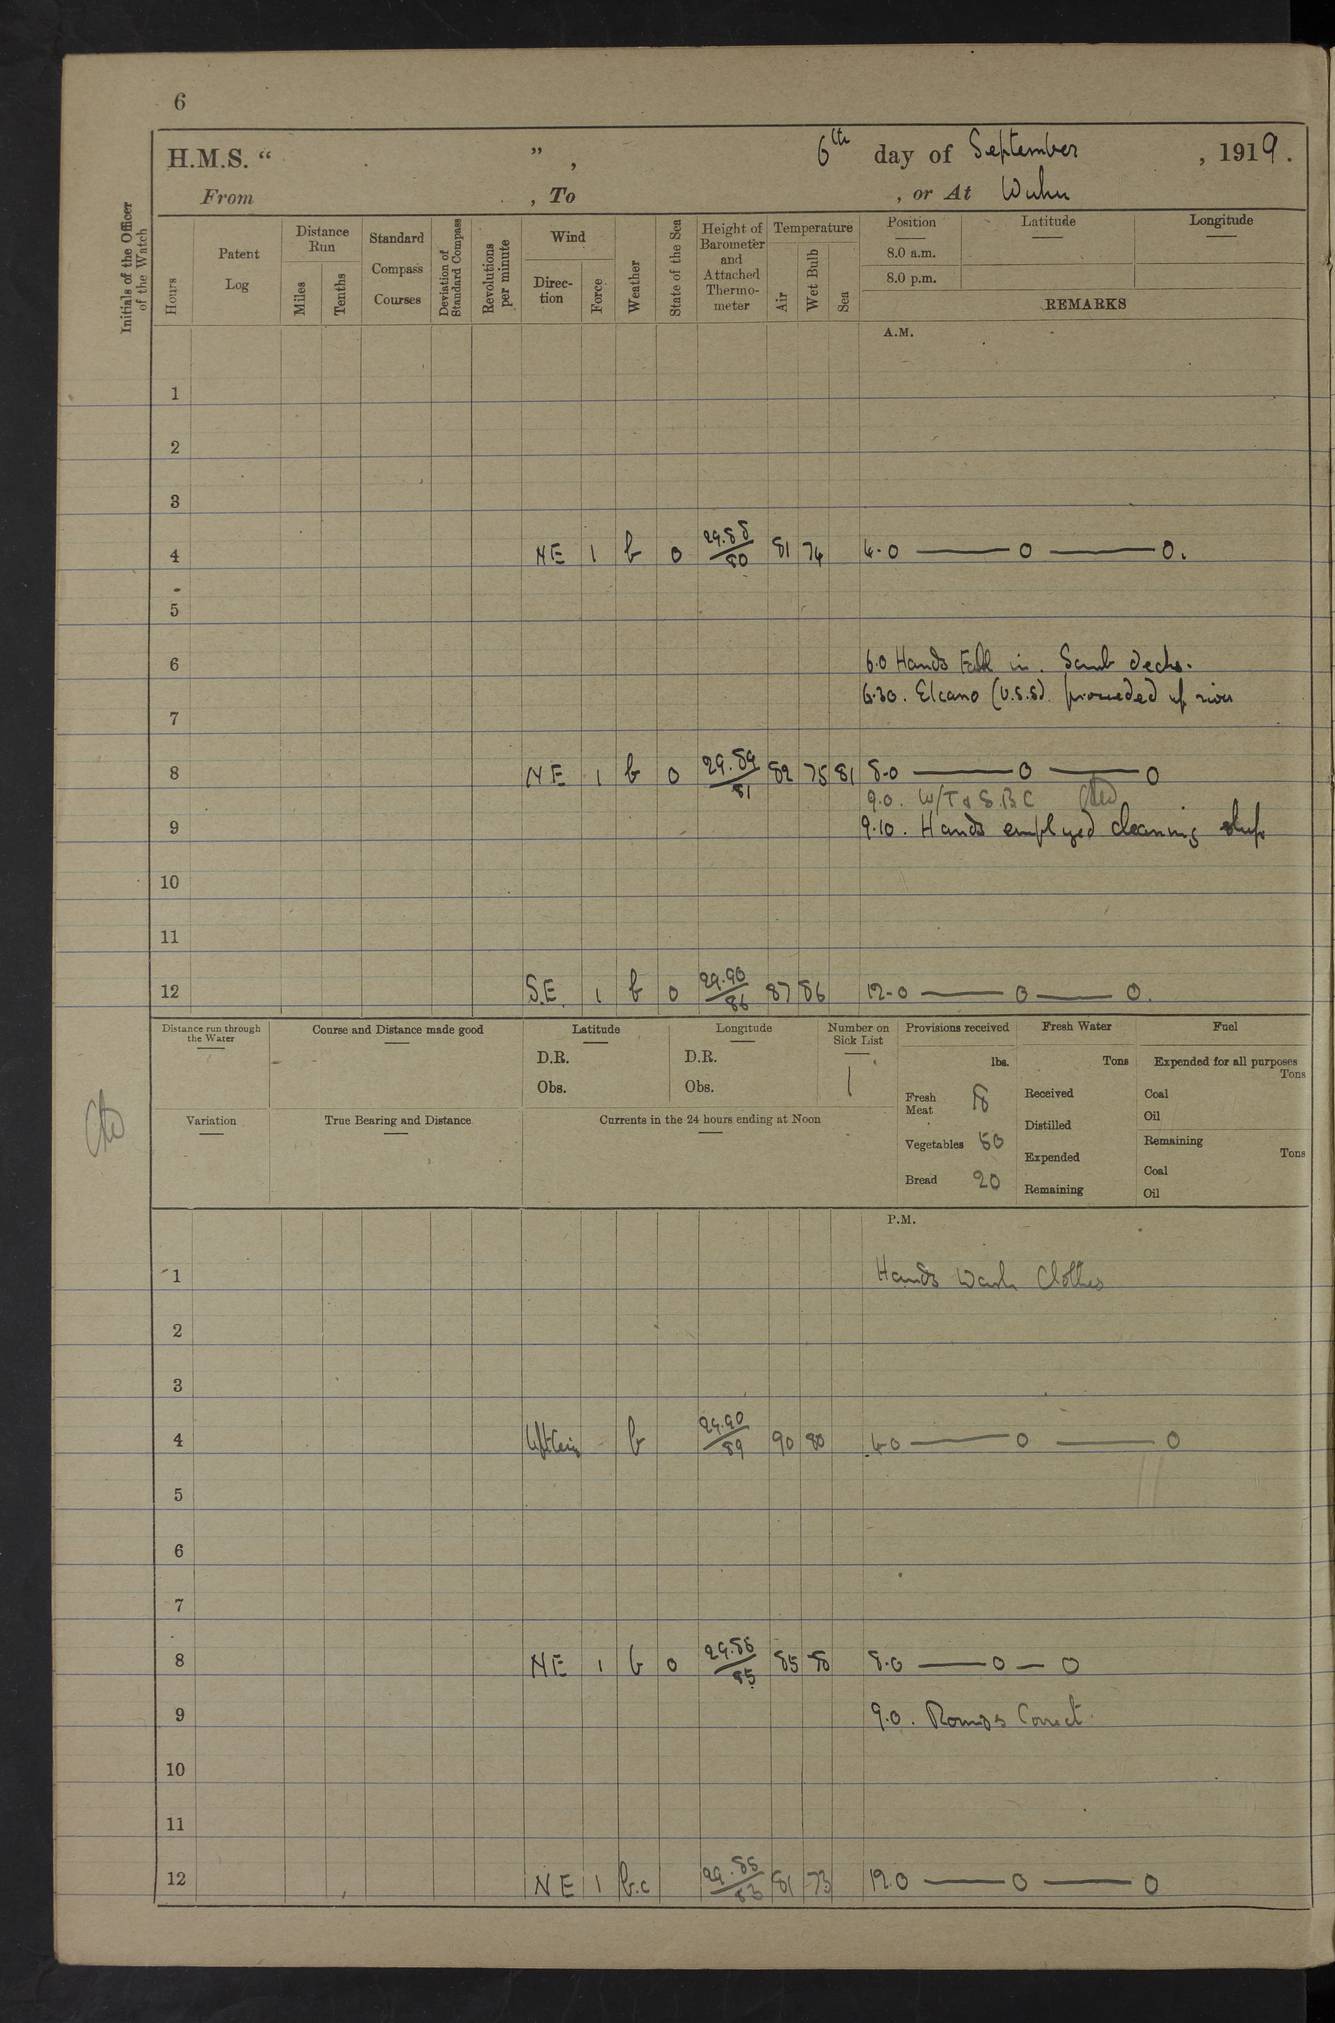 6
H.M.S. “ ” , 6th day of September , 1919.
From , To , or At Wuhu
Initials of the Officer of the Watch
Hours
Patent Log
Distance Run
Miles
Tenths
Standard Compass Courses
Deviation of Standard Compass
Revolutions per minute
Wind
Direction
Force
Weather
State of the Sea
Height of Barometer and Attached Thermometer
Temperature
Air
Wet Bulb
Sea
Position Latitude Longitude
8.0 a.m.
8.0 p.m.
REMARKS
A.M.
1
2
3
4 NE 1 b 0 29.88/80 81 74 4.0 — 0 — 0.
5
6 6.0 Hands Fall in. Scrub decks.
6.30. Elcano (U.S.S). proceeded up river
7
8 NE 1 b 0 29.89/81 82 75 81 8.0 — 0 — 0
9.0. W/T & S.B.C
9 9.10. Hands employed cleaning ship
10
11
12 S.E. 1 b 0 29.90/86 87 86 12.0 — 0 — 0.
Distance run through the Water
Course and Distance made good
Latitude
D.R.
Obs.
Longitude
D.R.
Obs.
Number on Sick List
1
Provisions received
lbs.
Fresh Meat 8
Vegetables 50
Bread 20
Fresh Water
Tons
Received
Distilled
Expended
Remaining
Fuel
Expended for all purposes
Tons
Coal
Oil
Remaining
Tons
Coal
Oil
Variation
True Bearing and Distance
Currents in the 24 hours ending at Noon
P.M.
1 Hands Wash Clothes
2
3
4 b 29.90/89 90 80 4.0 — 0 — 0
5
6
7
8 NE 1 b 0 29.86/85 85 78 8.0 — 0 — 0
9 9.0. Rounds Correct
10
11
12 NE 1 b.c 29.85/83 81 73 12.0 — 0 — 0